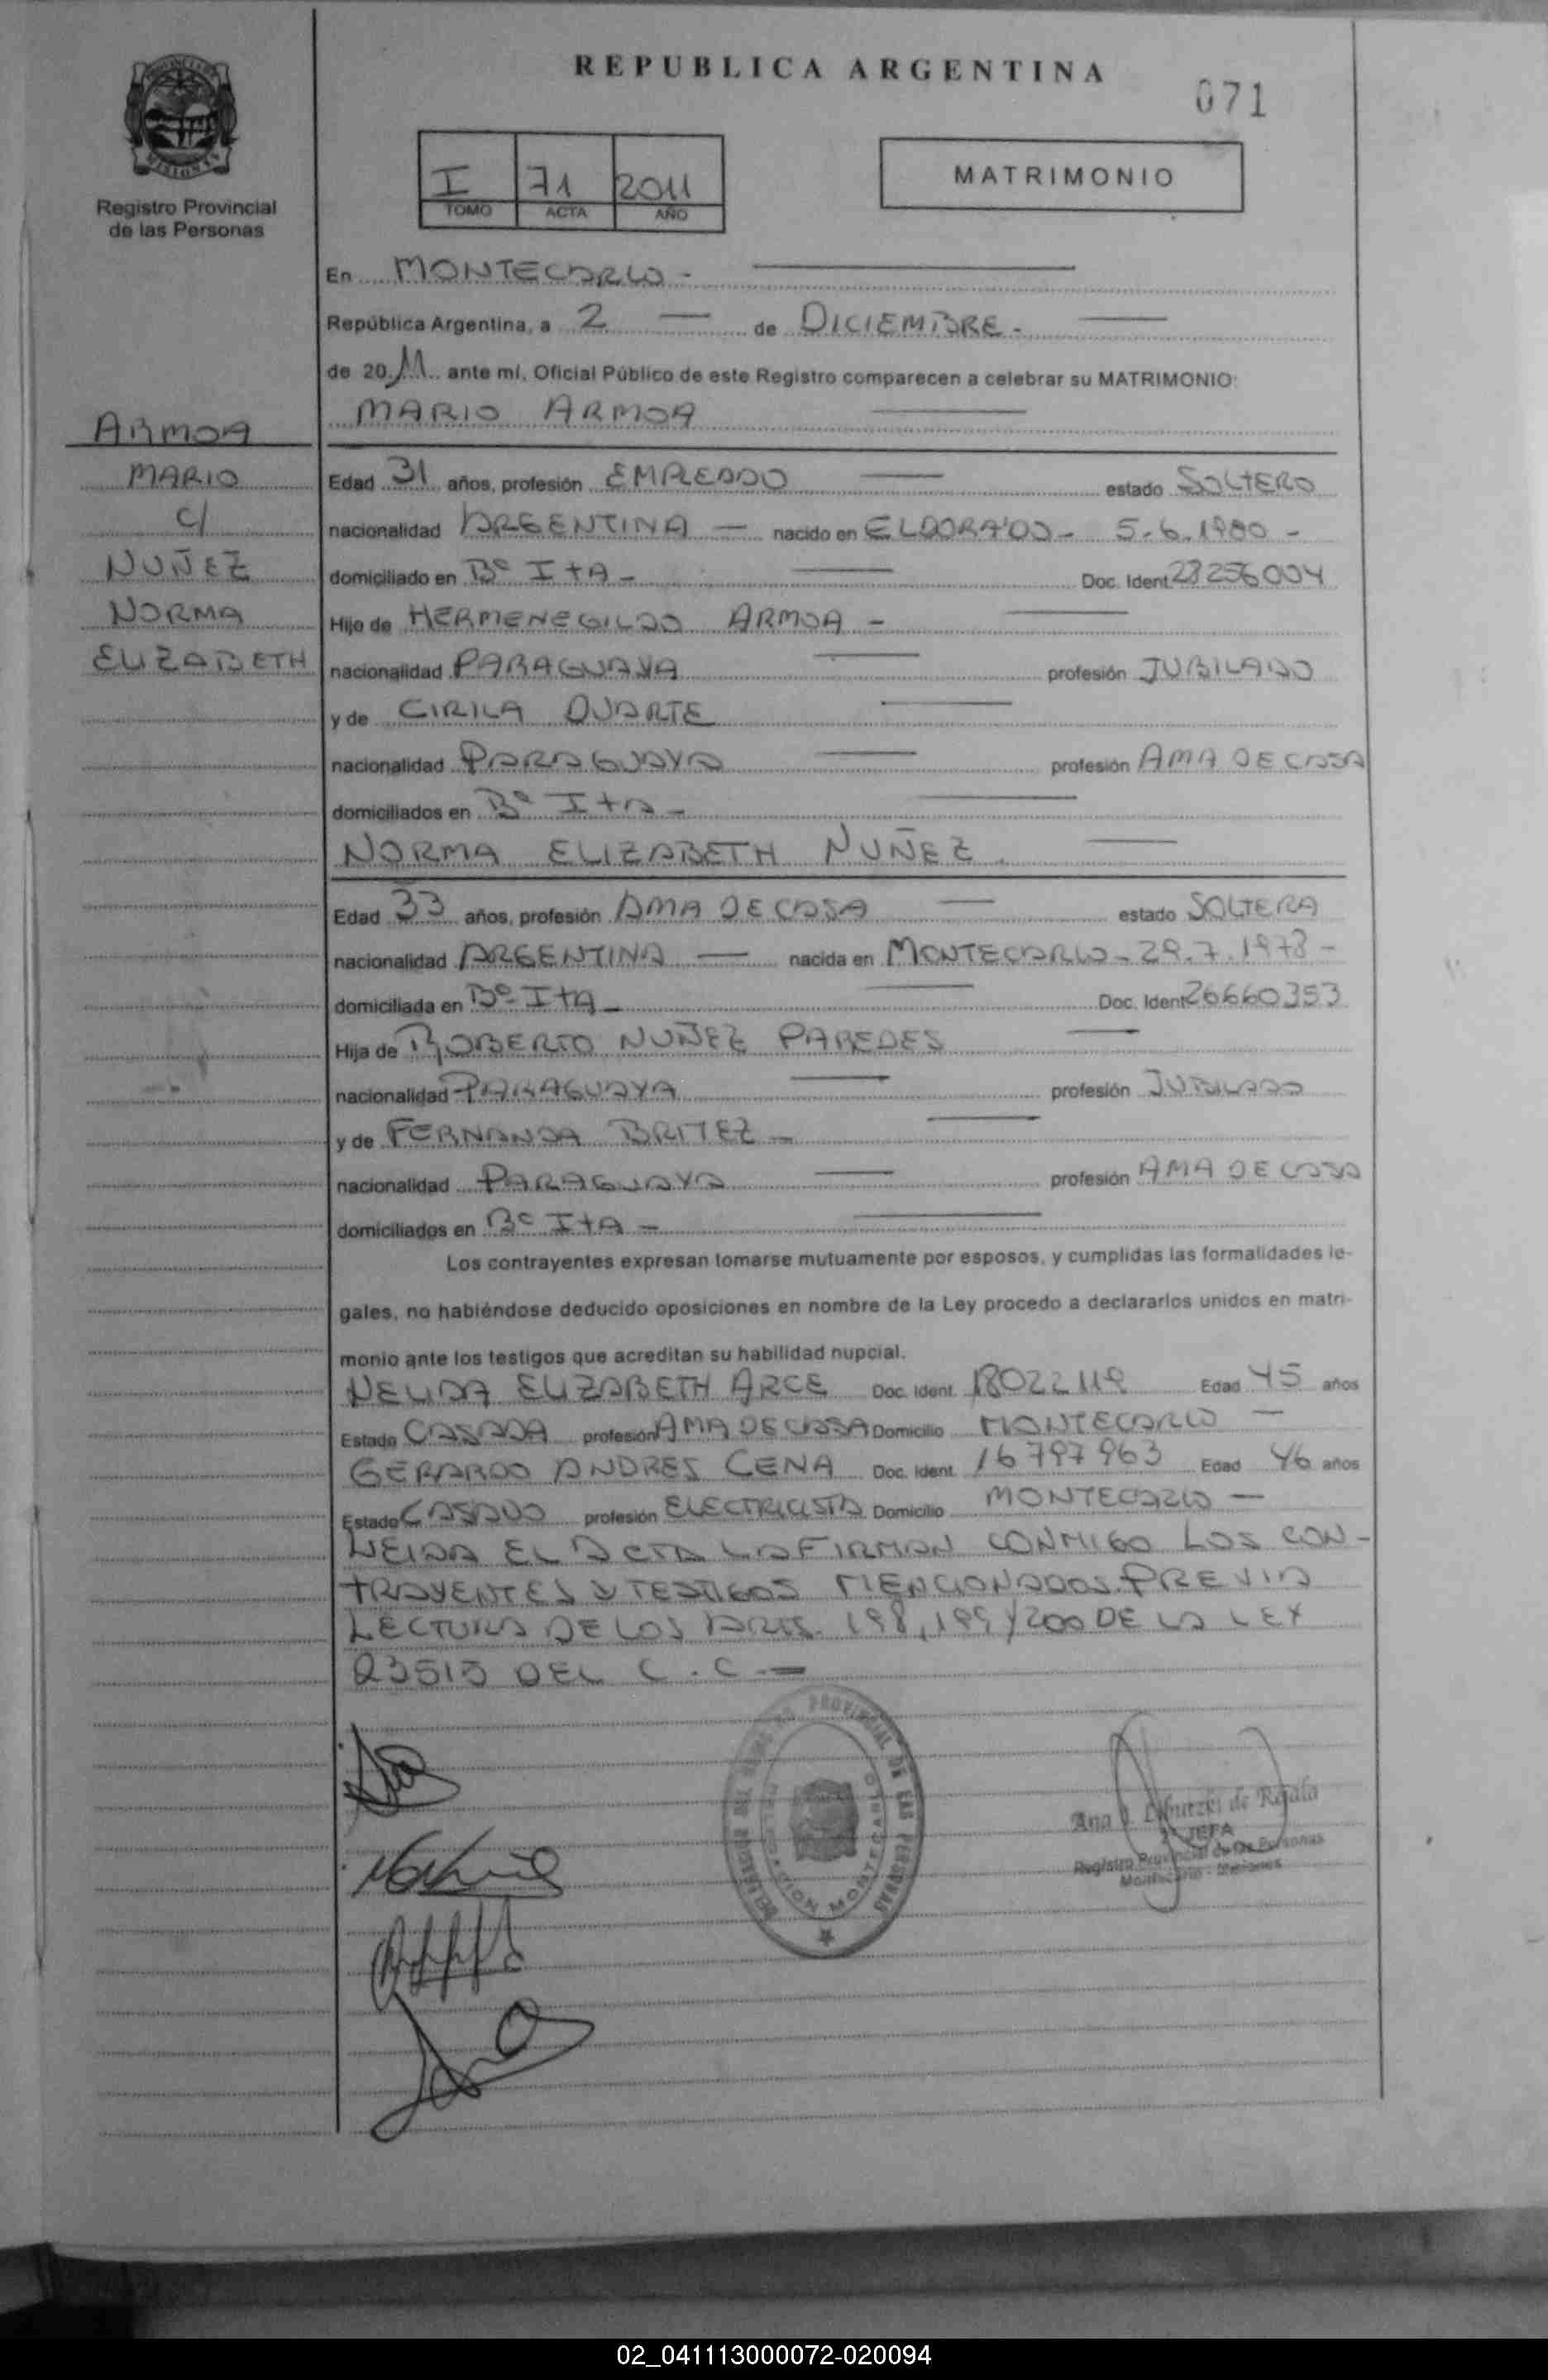 REPUBLICA ARGENTINA
071
Registro Provincial
de las Personas
I 71 2011
TOMO ACTA AÑO
MATRIMONIO
En MONTECARLO -
República Argentina, a 2 — de DICIEMBRE -
de 2011 ante mí, Oficial Público de este Registro comparecen a celebrar su MATRIMONIO:
MARIO ARMOA
ARMOA
MARIO
C/
NUÑEZ
NORMA
ELIZABETH
Edad 31 años, profesión EMPLEADO estado SOLTERO
nacionalidad ARGENTINA — nacido en ELDORADO - 5-6.1980 -
domiciliado en Bº ITA - Doc. Ident 28256004
Hijo de HERMENEGILDO ARMOA -
nacionalidad PARAGUAYA profesión JUBILADO
y de CIRILA DUARTE
nacionalidad PARAGUAYA profesión AMA DE CASA
domiciliados en Bº ITA -
NORMA ELIZABETH NUÑEZ.
Edad 33 años, profesión AMA DE CASA estado SOLTERA
nacionalidad ARGENTINA — nacida en MONTECARLO - 29.7.1978 -
domiciliada en Bº ITA - Doc. Ident 26660353
Hija de ROBERTO NUÑEZ PAREDES
nacionalidad PARAGUAYA profesión JUBILADO
y de FERNANDA BRITEZ -
nacionalidad PARAGUAYA profesión AMA DE CASA
domiciliados en Bº ITA -
Los contrayentes expresan tomarse mutuamente por esposos, y cumplidas las formalidades le-
gales, no habiéndose deducido oposiciones en nombre de la Ley procedo a declararlos unidos en matri-
monio ante los testigos que acreditan su habilidad nupcial.
NELIDA ELIZABETH ARCE Doc. Ident. 18022119 Edad 45 años
Estado CASADA profesión AMA DE CASA Domicilio MONTECARLO -
GERARDO ANDRES CENA Doc. Ident. 16797963 Edad 46 años
Estado CASADO profesión ELECTRICISTA Domicilio MONTECARLO -
LEIDA EL ACTA LA FIRMAN CONMIGO LOS CON-
TRAYENTES Y TESTIGOS MENCIONADOS. PREVIA
LECTURA DE LOS ARTS. 198, 199 Y 200 DE LA LEY
23515 DEL C.C.-
PROVINCIAL DE LAS PERSONAS
MONTECARLO
Ana de
JEFA
Registro Provincial de las Personas
Montecarlo - Misiones
02_041113000072-020094